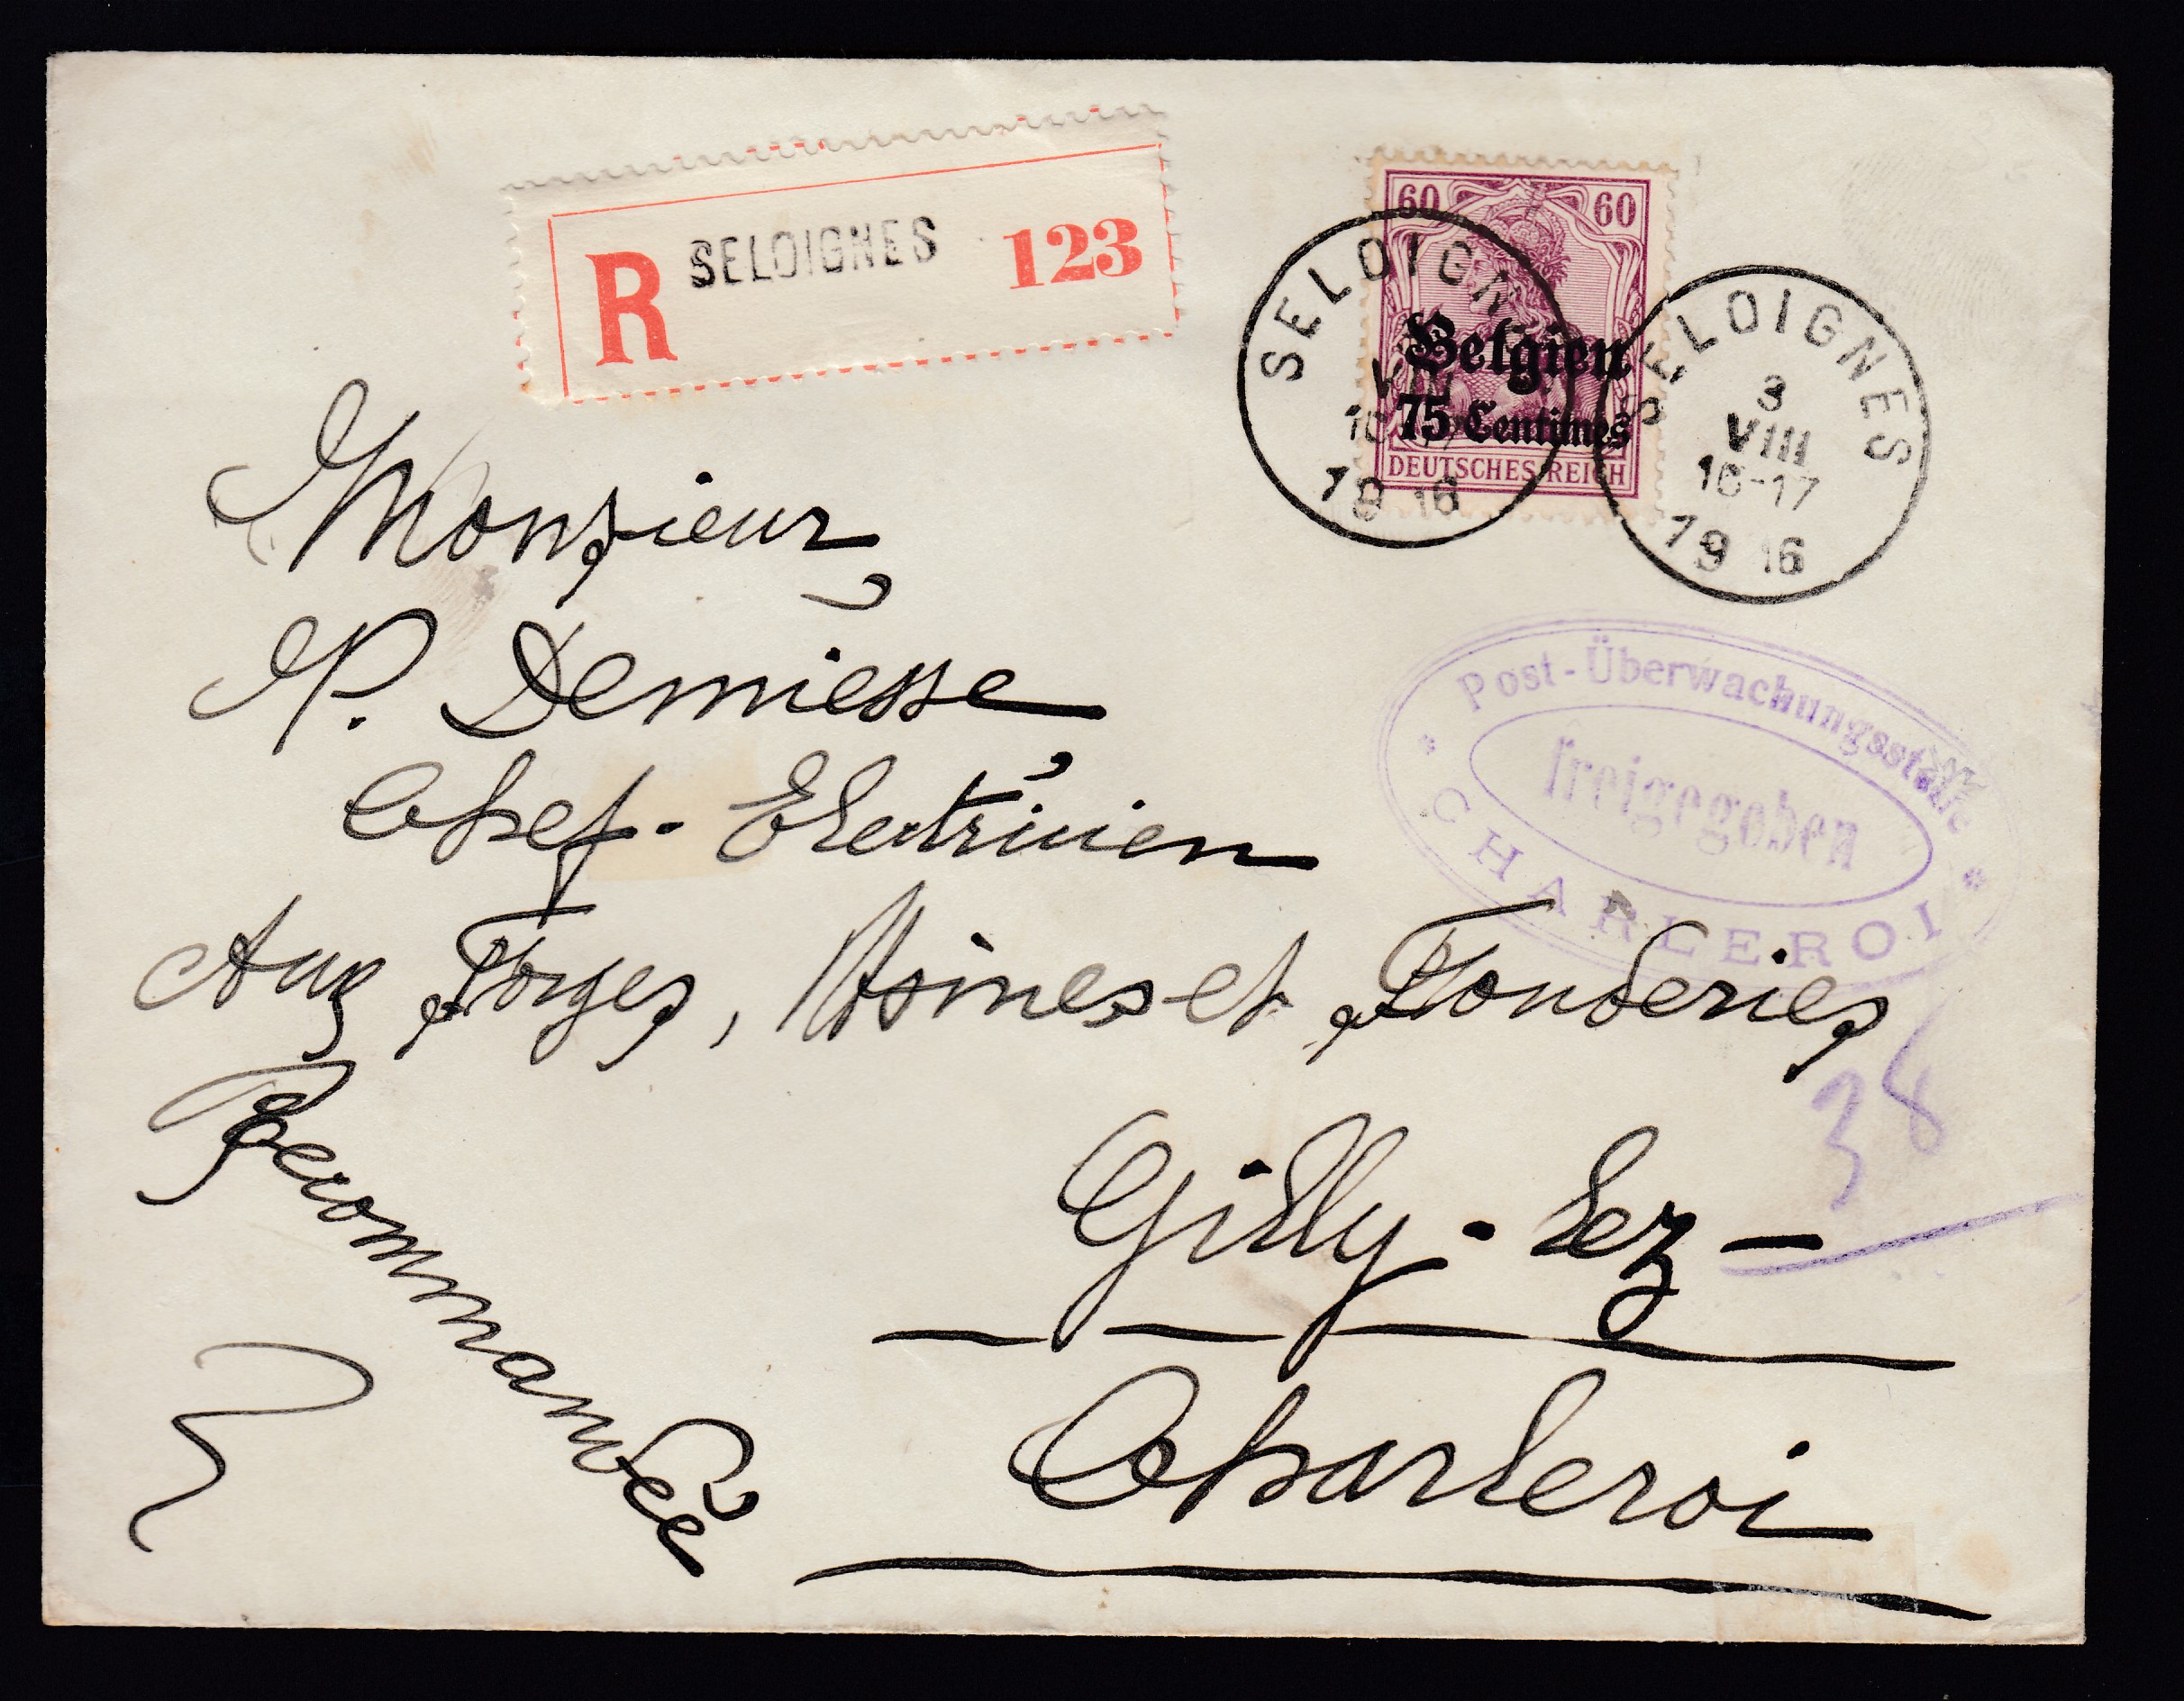 R SELOIGNES 123
60 60
Belgien
75 Centimes
DEUTSCHES REICH
SELOIGNES
VIII
19 16
SELOIGNES
3
VIII
16-17
19 16
Monsieur,
Demiesse,
Chef-Electricien
Aux Forges, Usines et Fonderies
Gilly-lez-
Charleroi
Recommandée
Post-Überwachungsstelle
freigegeben
CHARLEROI
38